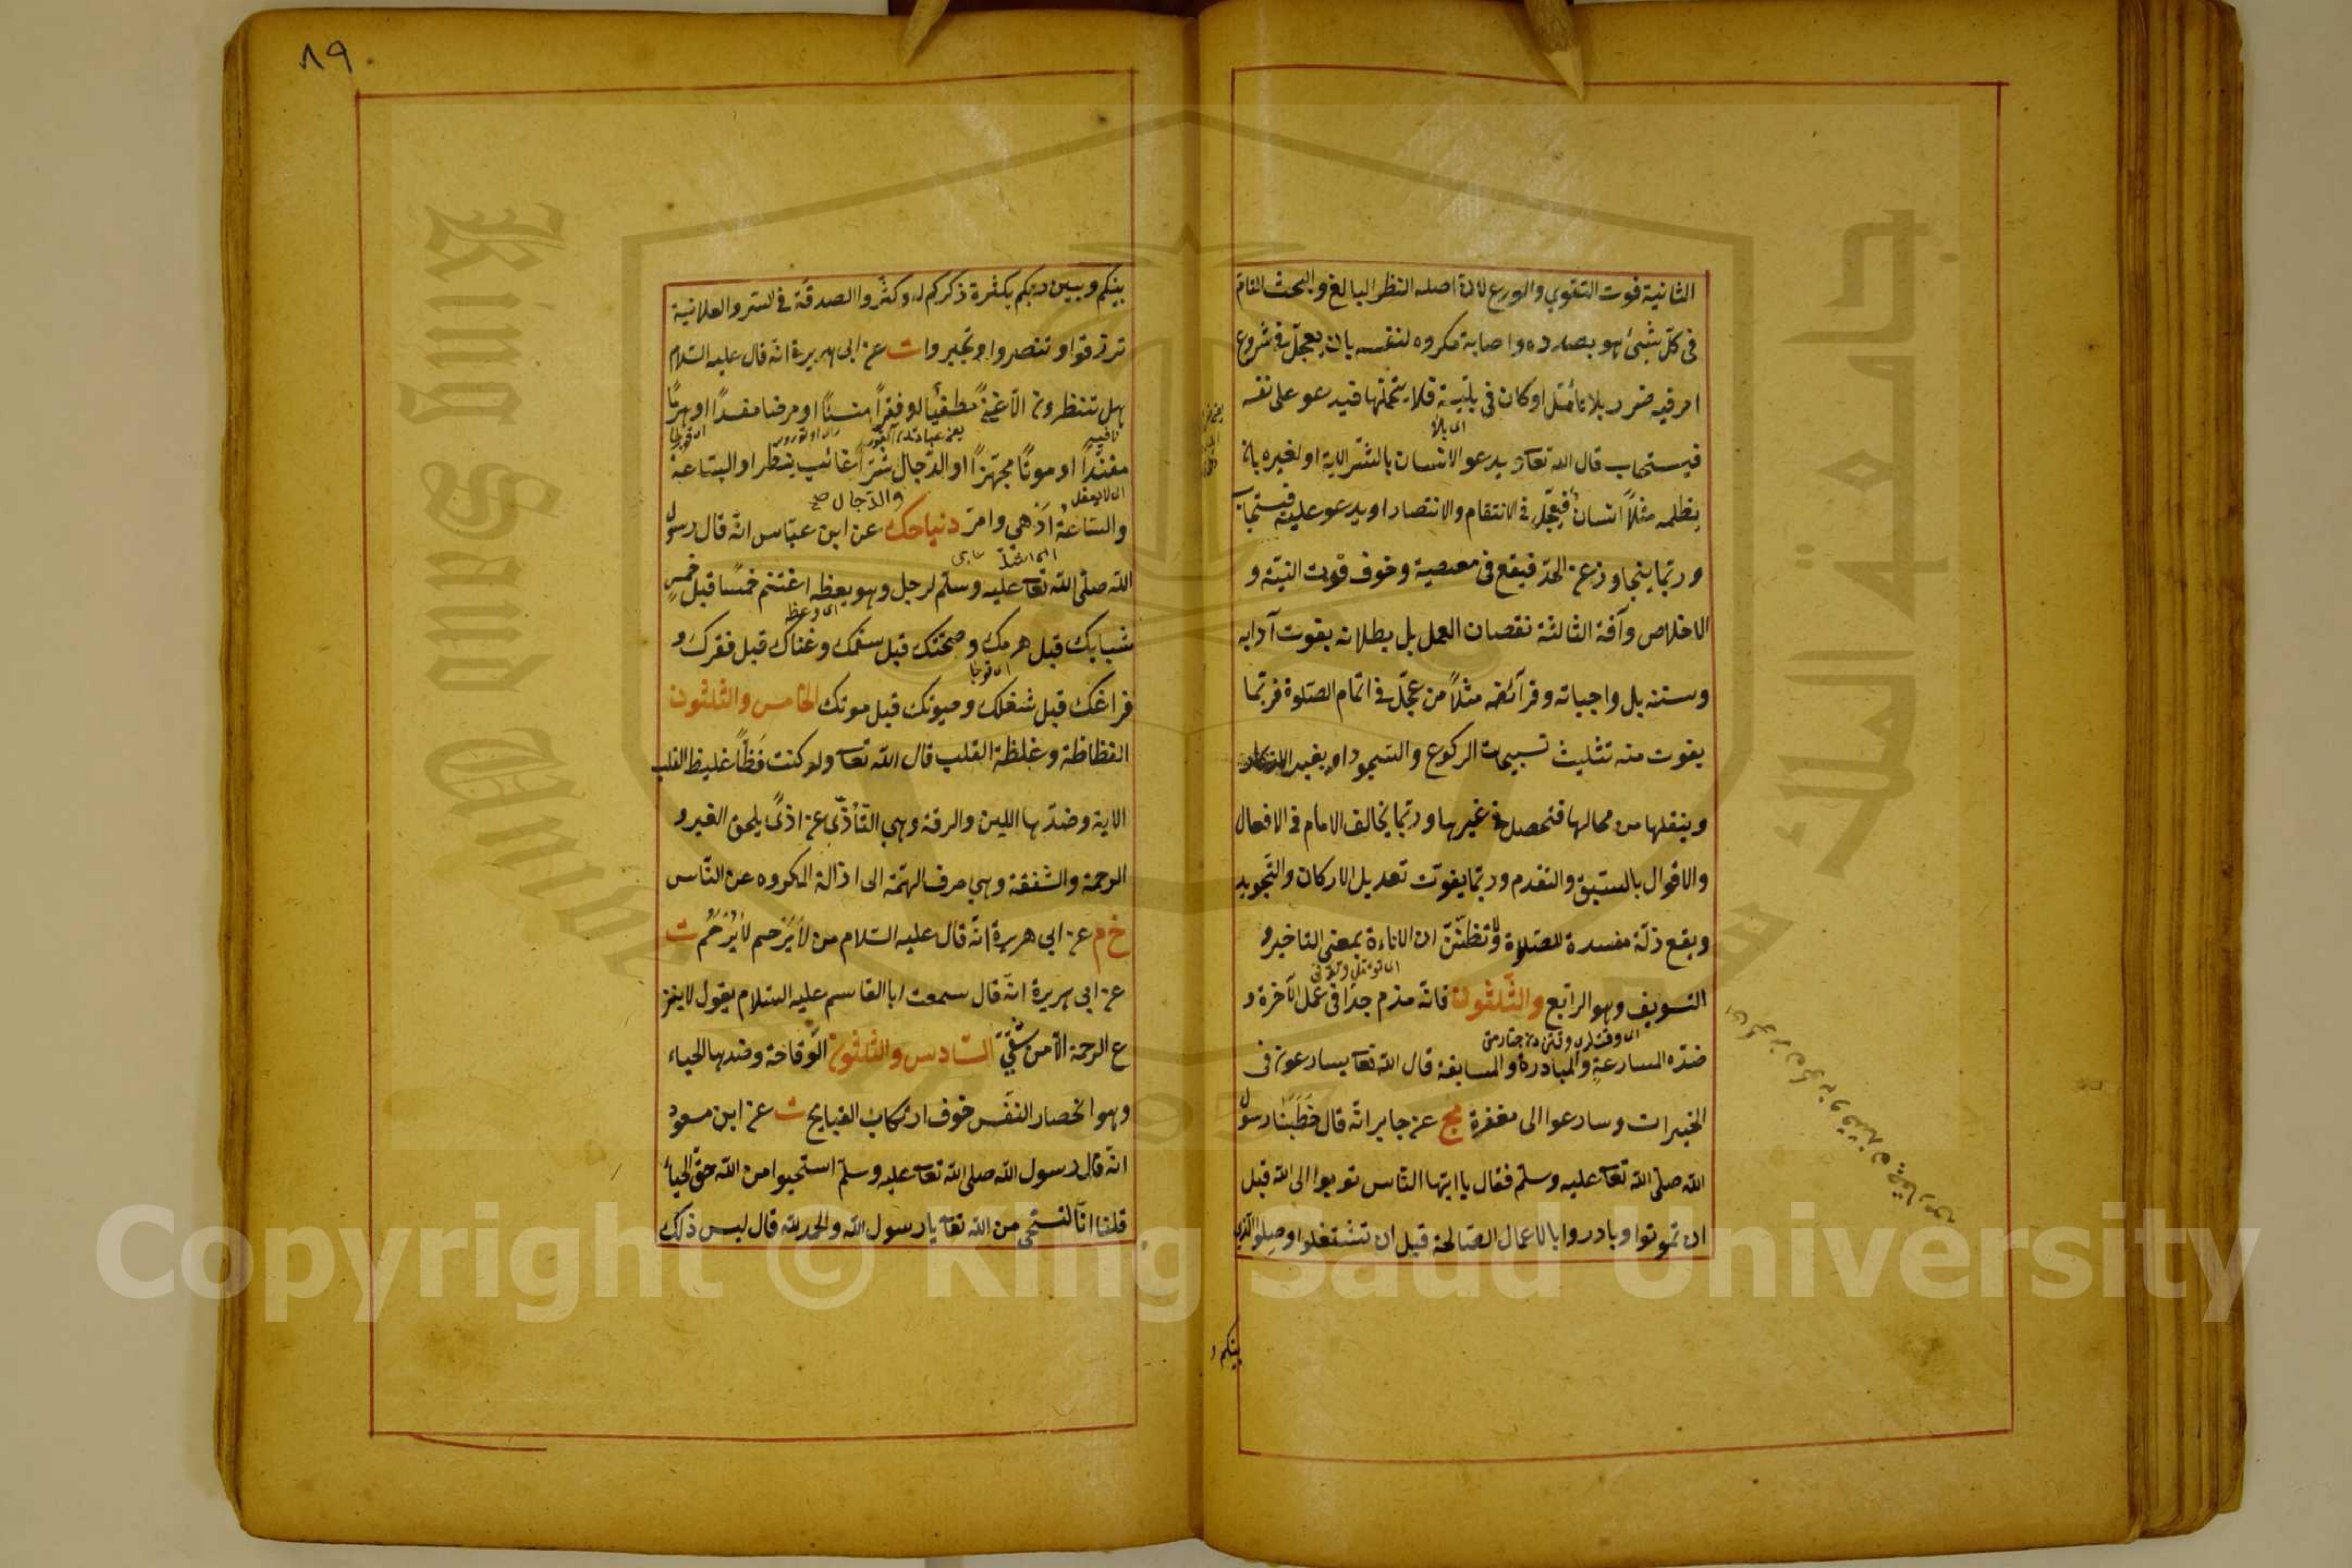 الثانية فوت التقوي والورع لان اصله النظر البالغ والبحث التام
في كل شيئ هو بصدده واصابة مكروه لنفسه بان يعجل في شروع
امر فيه ضرر بلا تأمل او كان في بلية فلا يتحملها فيدعو على نفسه
فيستجاب قال الله تعا ويدعو الانسان بالشر الاية او لغيره بان
يظلمه مثلاً انسان فيعجل في الانتقام والانتصار او يدعو عليه فيستجاب
وربما يتجاوز عن الحد فيقع في معصية وخوف فوت النية و
الاخلاص وآفة الثالثة نقصان العمل بل بطلانه بفوت آدابه
وسننه بل واجباته وفرآئضه مثلاً من عجل في اتمام الصلوة فربما
يفوت منه تثليث تسبيحات الركوع والسجود او يغير الاذكار
وينقلها من محالها فتحصل في غيرها وربما يخالف الامام في الافعال
والاقوال بالسبق والتقدم وربما يفوت تعديل الاركان والتجويد
ويقع زلة مفسدة للصلاة ولا تظنن ان الاناءة بمعنى التاخير و
التسويف وهو الرابع والثلثون فانه مذم جدا في عمل الآخرة و
ضده المسارعة والمبادرة والمسابقة قال الله تعا يسارعون في
الخيرات وسارعوا الى مغفرة مج عن جابر انه قال خطبنا رسول
الله صلى الله تعا عليه وسلم فقال يا ايها الناس توبوا الى الله قبل
ان تموتوا وبادروا بالاعمال الصالحة قبل ان تشتغلوا وصلوا الذي
بينكم و
٨٩
بينكم وبين ربكم بكثرة ذكركم له وكثروا الصدقة في السر والعلانية
ترزقوا وتنصروا وتجبروا ت عن ابى هريرة انه قال عليه السلام
هل تنتظرون الا غنىً مطغياً او فقراً منسئاً او مرضا مفسداً او هرماً
مفنداً او موتاً مجهزاً او الدجال شر غائب ينتظر او الساعة
والدجال صح
والساعة ادهى وامر دنيا حك عن ابن عباس انه قال رسول
الله صلى الله تعا عليه وسلم لرجل وهو يعظه اغتنم خمسا قبل خمس
شبابك قبل هرمك وصحتك قبل سقمك وغناك قبل فقرك و
فراغك قبل شغلك وحيوتك قبل موتك الخامس والثلثون
الفظاظة وغلظة القلب قال الله تعا ولو كنت فظاً غليظ القلب
الاية وضدها اللين والرقة وهي التأذى عن اذىً يلحق الغير و
الرحمة والشفقة وهي صرف الهمة الى ازالة المكروه عن الناس
خ م عن ابي هريرة انه قال عليه السلام من لا يرحم لا يرحم ت
عن ابي هريرة انه قال سمعت ابا القاسم عليه السلام يقول لا ينز
ع الرحمة الا من شقي السادس والثلثون الوقاحة وضدها الحياء
وهو انحصار النفس خوف ارتكاب القبايح ت عن ابن مسعود
انه قال رسول الله صلى الله تعا عليه وسلم استحيوا من الله حق الحياء
قلنا انا لنستحي من الله تعا يا رسول الله والحمد لله قال ليس ذلك
Copyright © King Saud University